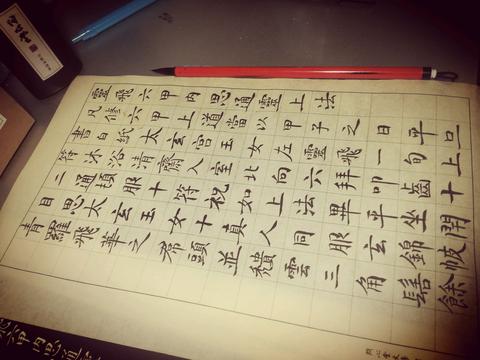 靈飛六甲內思通靈上法
凡修六甲上道當以甲子之日平旦
書白紙太玄宮玉女左靈飛一旬上
符沐浴清齋入室北向六拜叩齒十
二通頓服十符祝如上法畢平坐閉
目思太玄玉女十真人同服玄錦帔
青羅飛華之頭並雲三角髻餘
飛六甲內思通